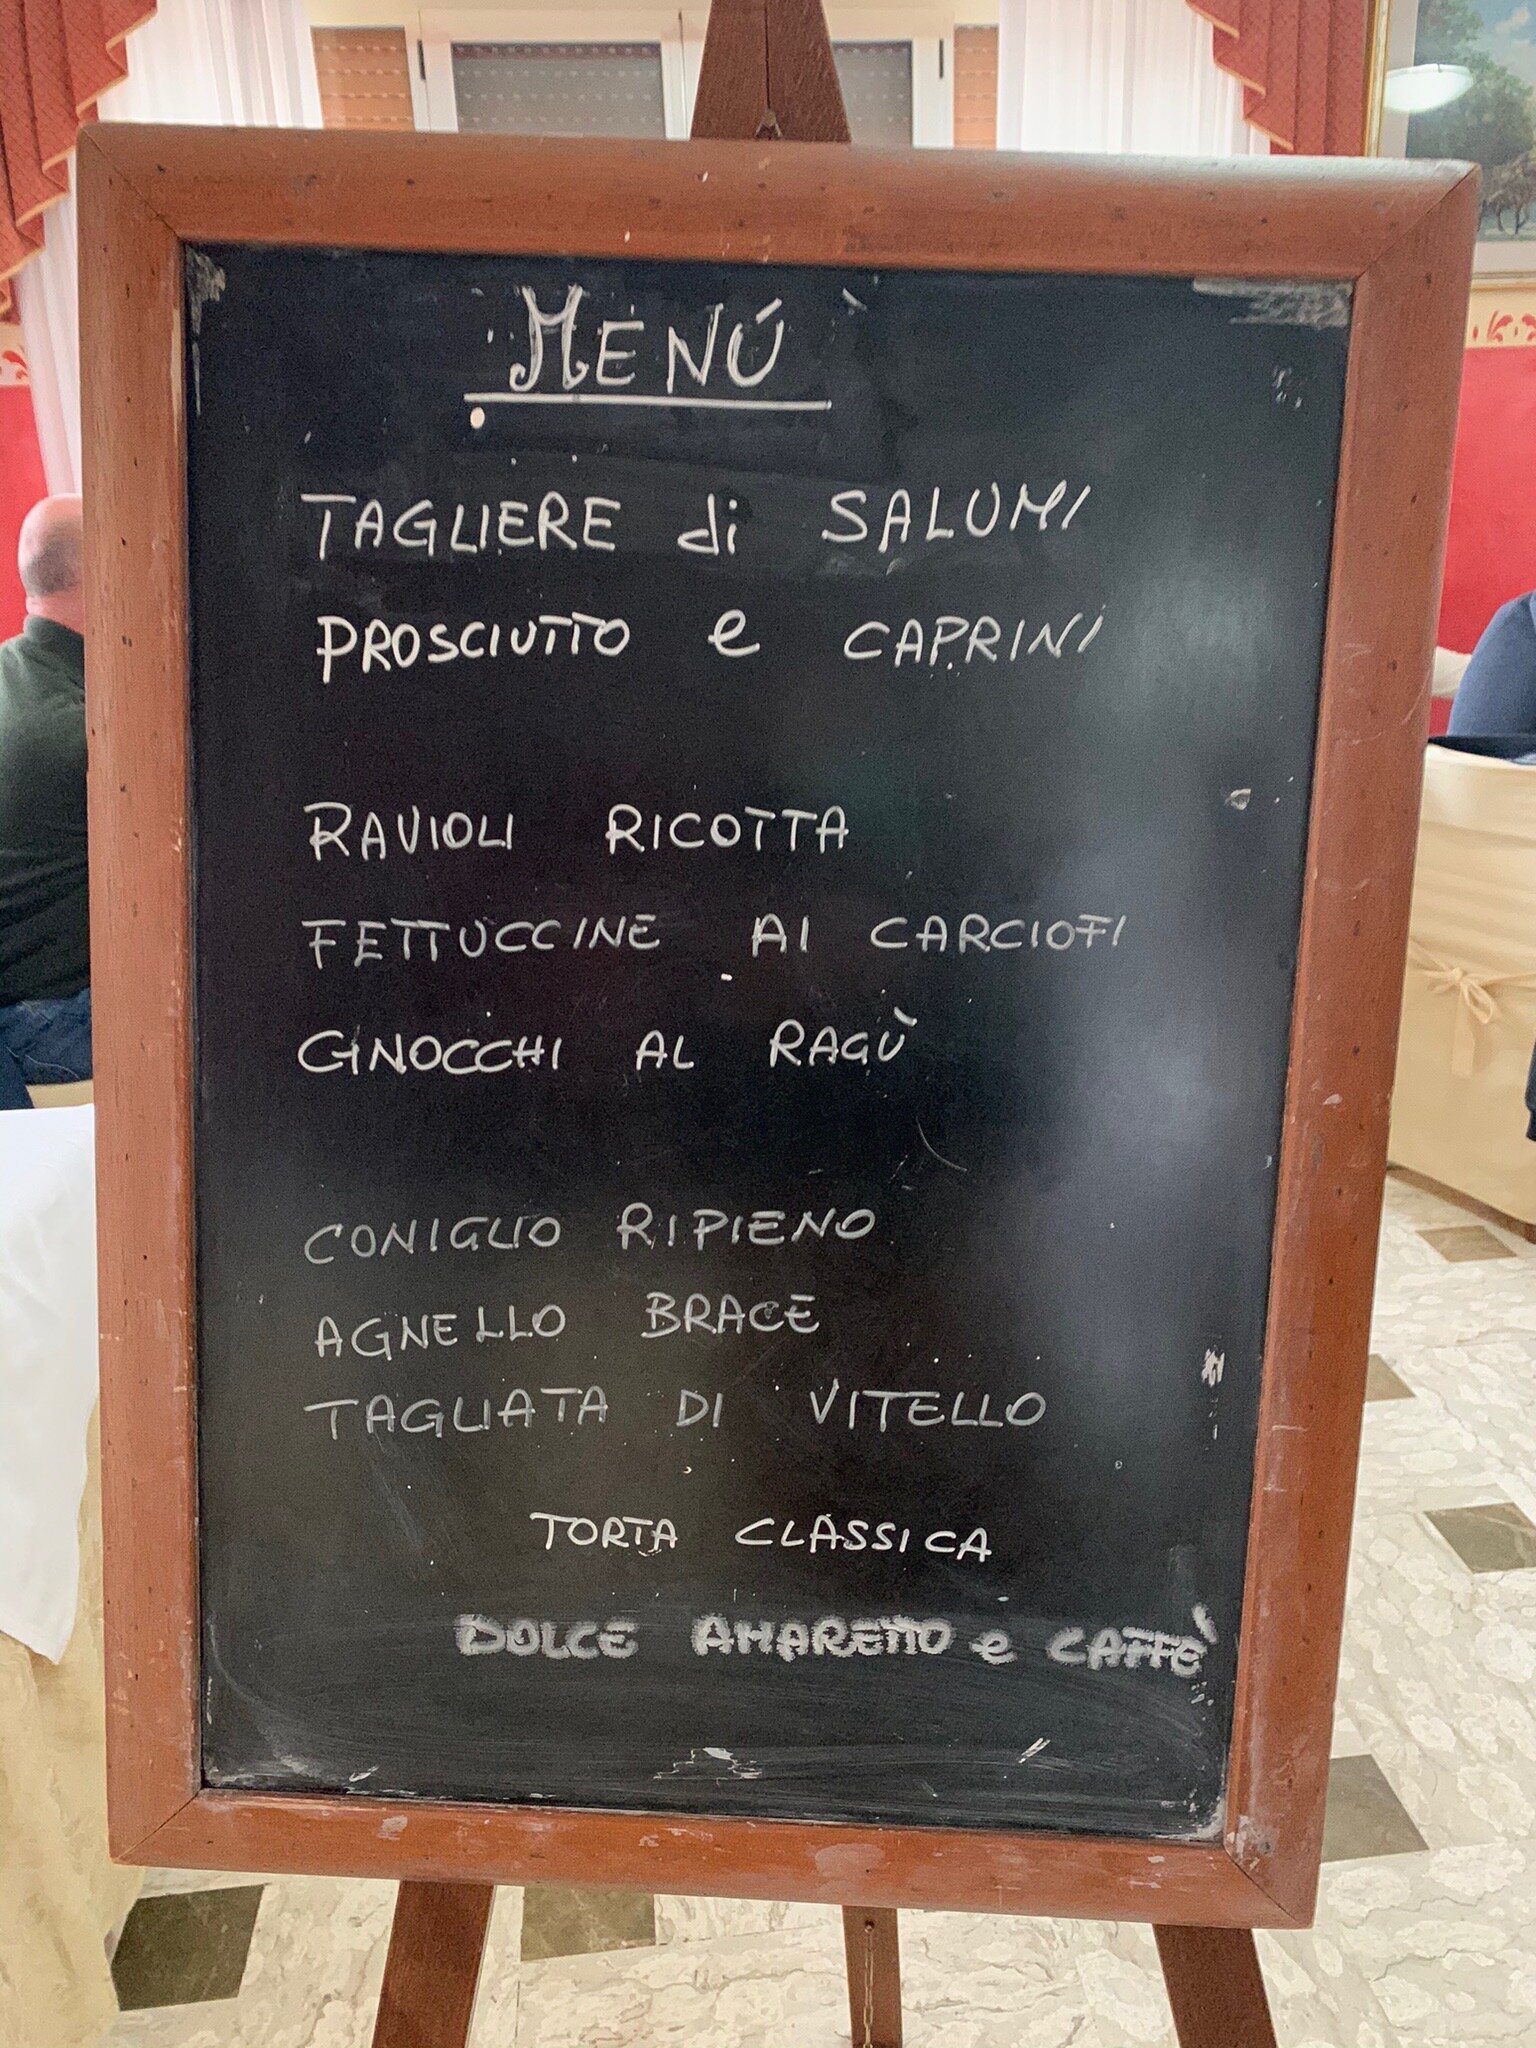 MENÚ
TAGLIERE di SALUMI
PROSCIUTTO e CAPRINI
RAVIOLI RICOTTA
FETTUCCINE AI CARCIOFI
GNOCCHI AL RAGÙ
CONIGLIO RIPIENO
AGNELLO BRACE
TAGLIATA DI VITELLO
TORTA CLASSICA
DOLCE AMARETTO e CAFFÈ